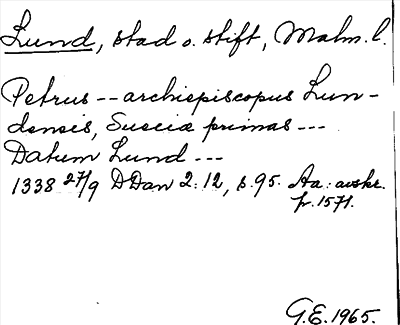 Lund, stad o. stift, Malm. l.
Petrus -- archiepiscopus Lun-
densis, Sueciæ primas ---
Datum Lund ---
1338 27/9 DDan 2:12, s. 95. Aa: avskr.
fr. 1571.
G.E. 1965.